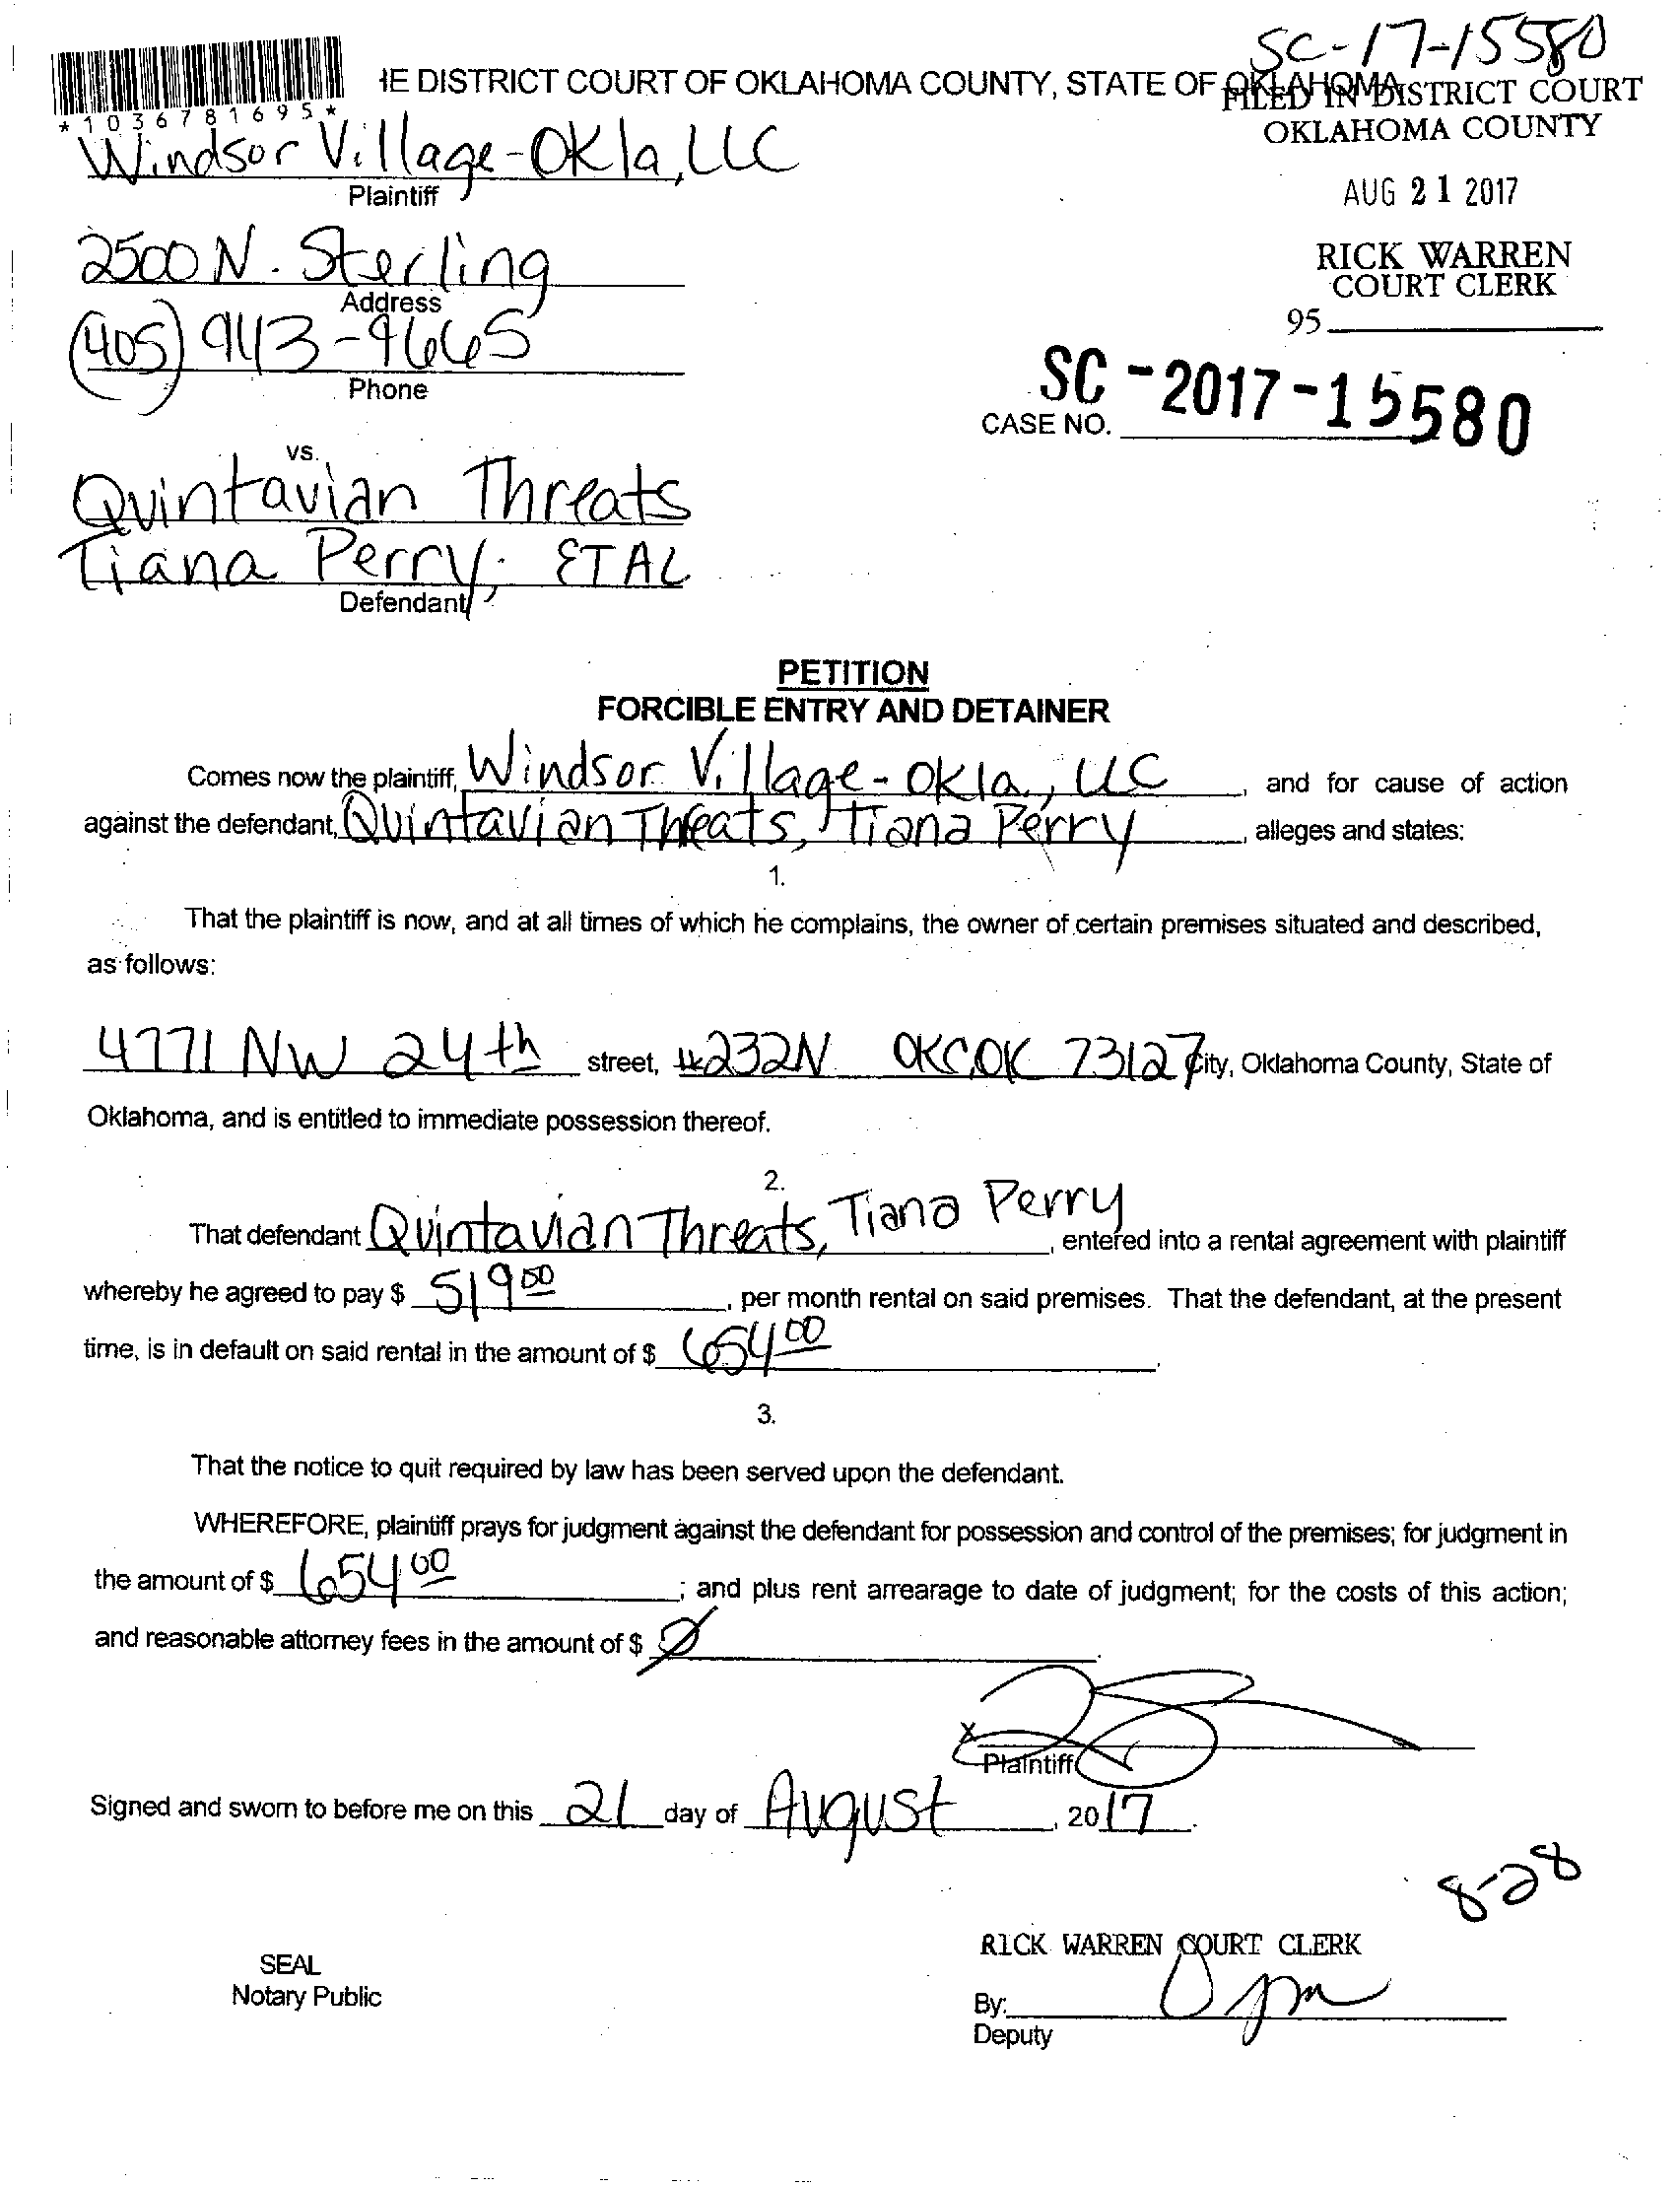 SC-17-15580
IE DISTRICT COURT OF OKLAHOMA COUNTY, STATE OF OKLAHOMA
FILED IN DISTRICT COURT
OKLAHOMA COUNTY
*1036781695*
Windsor Village-Okla, LLC
Plaintiff
AUG 21 2017
2500 N. Sterling
Address
RICK WARREN
COURT CLERK
95
(405) 943-9665
Phone
SC-2017-15580
CASE NO.
vs.
Quintavian Threats
Tiana Perry; ETAL
Defendant
PETITION
FORCIBLE ENTRY AND DETAINER
Comes now the plaintiff, Windsor Village-Okla., LLC, and for cause of action
against the defendant, Quintavian Threats, Tiana Perry, alleges and states:
1.
That the plaintiff is now, and at all times of which he complains, the owner of certain premises situated and described,
as follows:
4771 NW 24th street, #232N OKC, OK 73127 City, Oklahoma County, State of
Oklahoma, and is entitled to immediate possession thereof.
2.
That defendant Quintavian Threats, Tiana Perry, entered into a rental agreement with plaintiff
whereby he agreed to pay $ 519 00, per month rental on said premises. That the defendant, at the present
time, is in default on said rental in the amount of $ 654 00.
3.
That the notice to quit required by law has been served upon the defendant.
WHEREFORE, plaintiff prays for judgment against the defendant for possession and control of the premises; for judgment in
the amount of $ 654 00; and plus rent arrearage to date of judgment; for the costs of this action;
and reasonable attorney fees in the amount of $ Ø.
X
Plaintiff
Signed and sworn to before me on this 21 day of August, 2017.
8-28
RICK WARREN COURT CLERK
SEAL
Notary Public
By:
Deputy